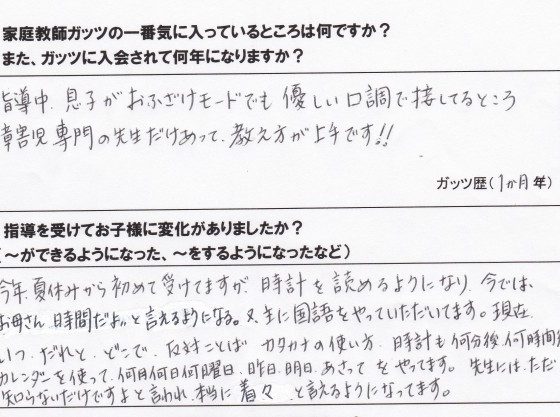 家庭教師ガッツの一番気に入っているところは何ですか？
また、ガッツに入会されて何年になりますか？
指導中、息子がおふざけモードでも優しい口調で接してるところ
障害児専門の先生だけあって、教え方が上手です!!
ガッツ歴（1か月年）
指導を受けてお子様に変化がありましたか？
（～ができるようになった、～をするようになったなど）
今年夏休みから初めて受けてますが、時計を読めるようになり、今では、
お母さん、時間だよ。と言えるようになる。又、主に国語をやっていただいてます。現在
いつ、だれと、どこで、反対ことば カタカナの使い方、時計も何分後、何時間後
カレンダーを使って、何月何日何曜日、昨日、明日、あさってをやってます。先生には、ただ
知らないだけですよと言われ、本当に着々 と言えるようになってます。